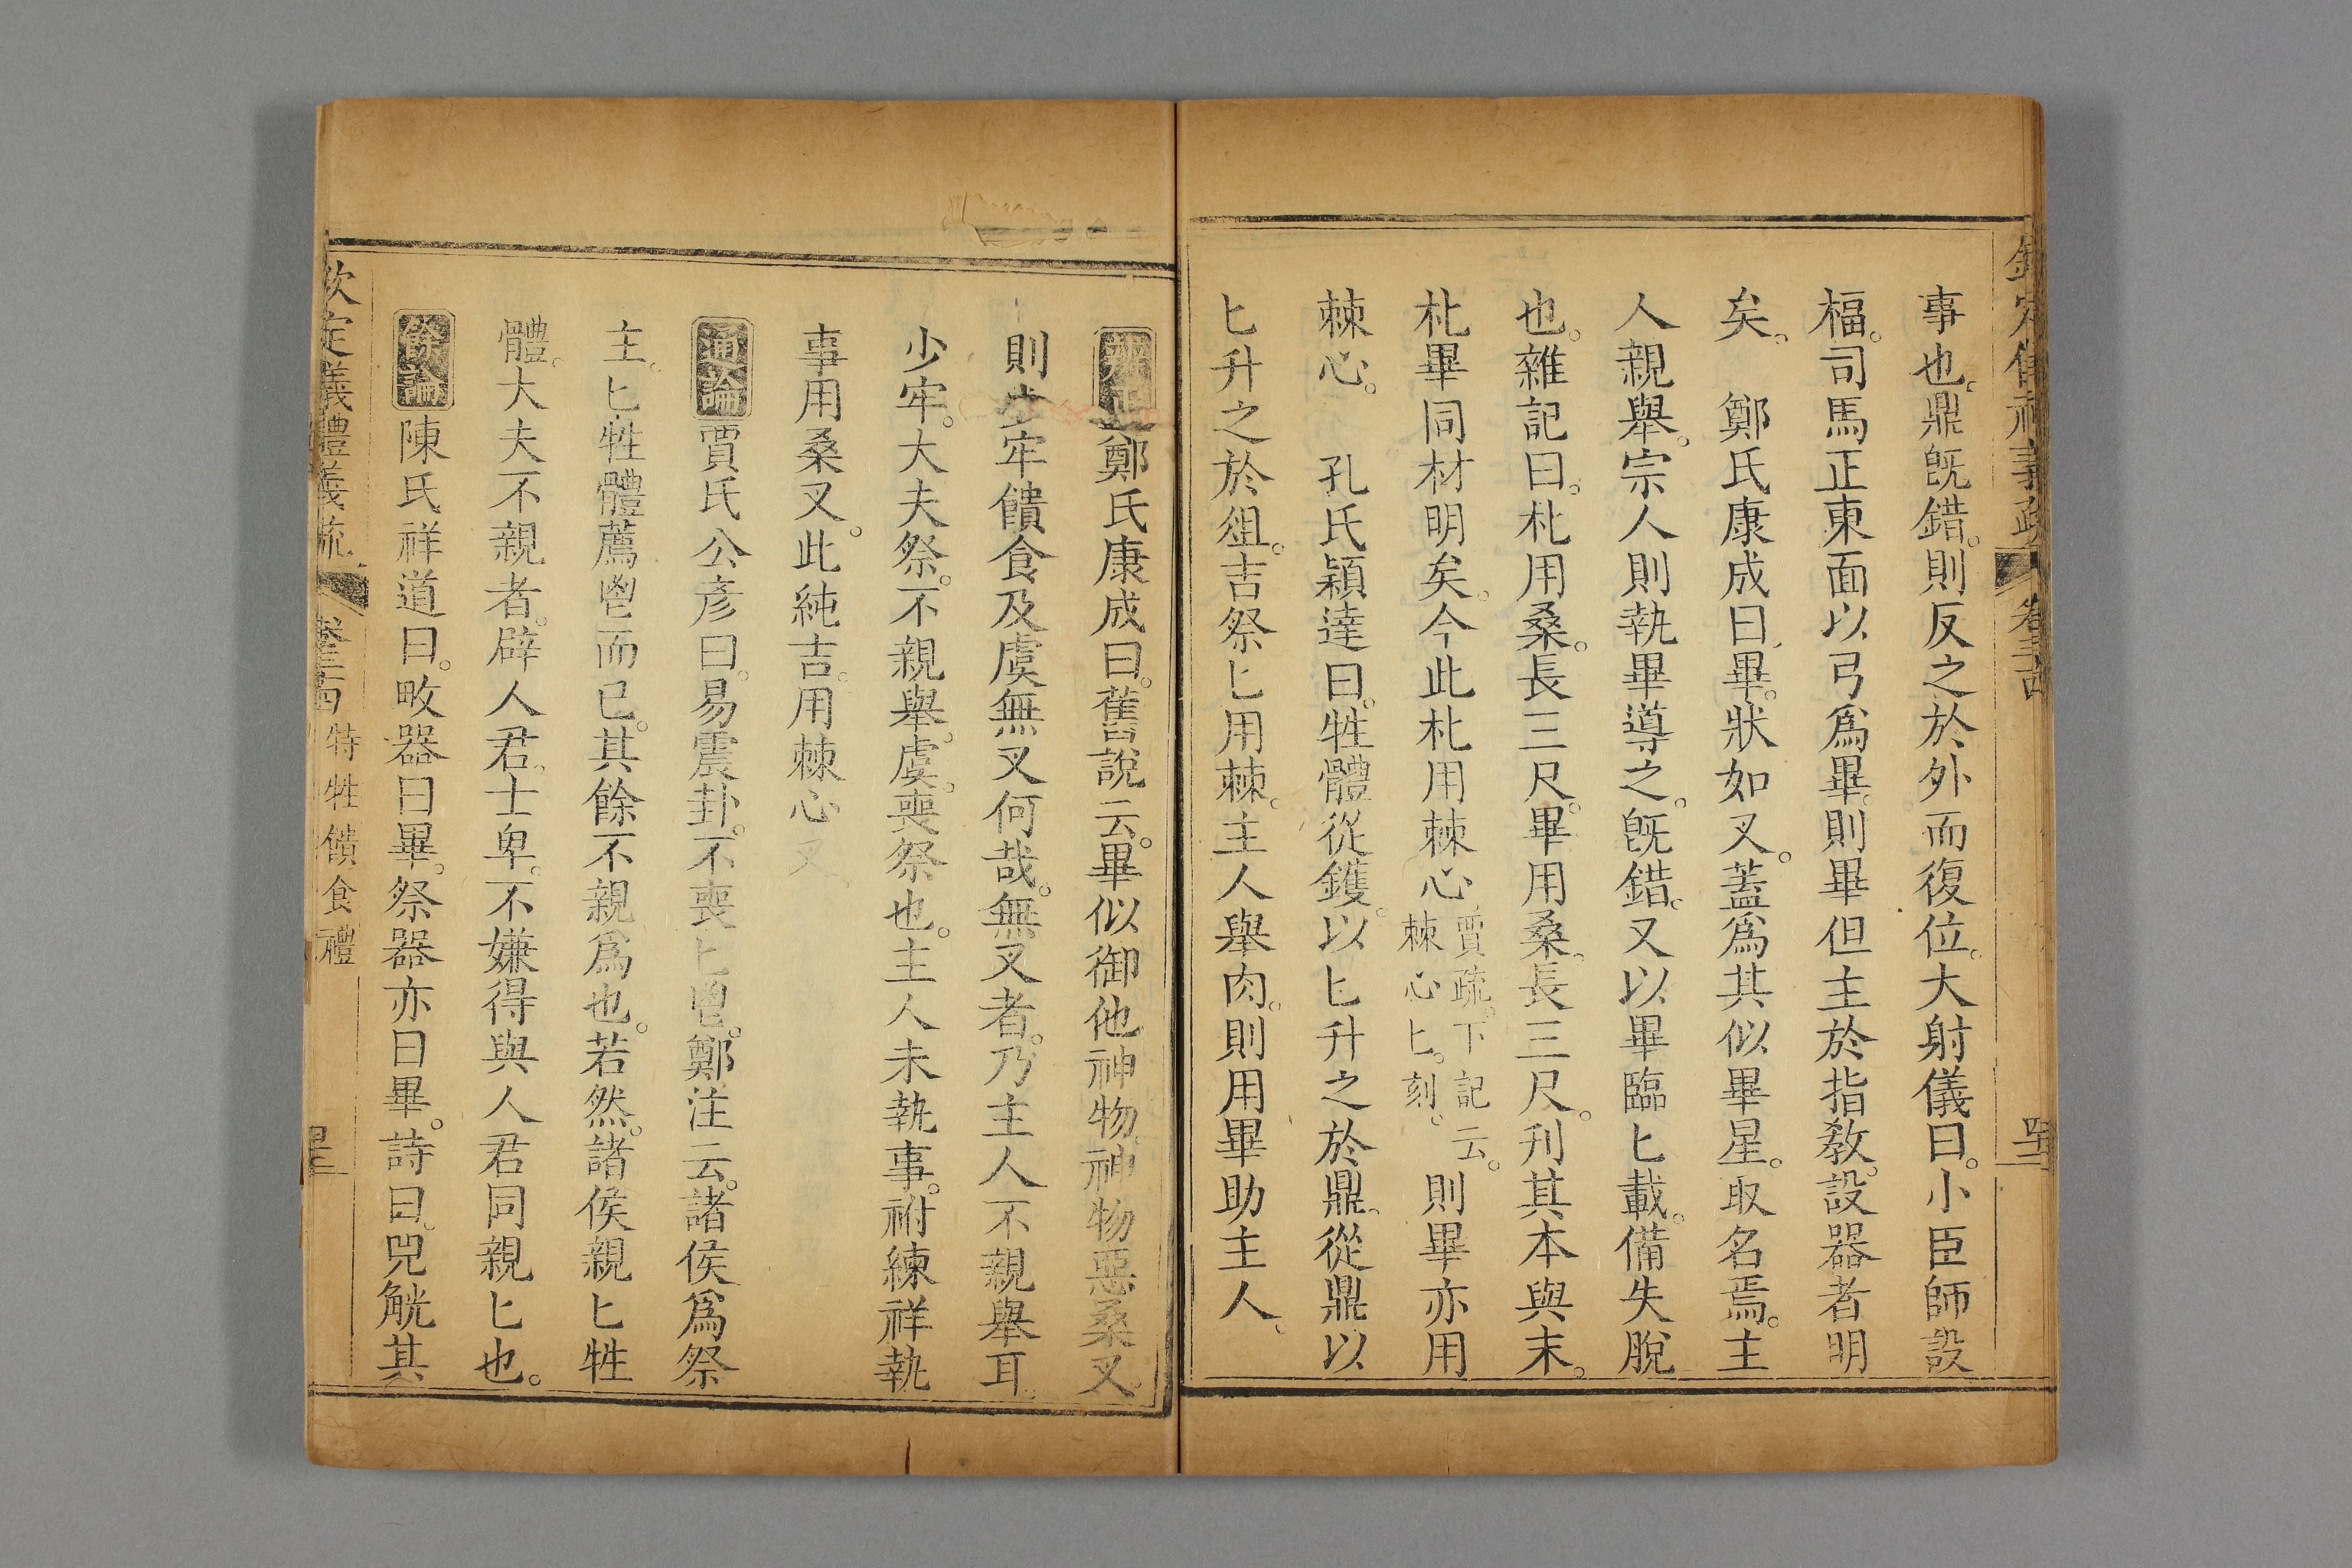 欽定儀禮義疏 卷三十四
事也。鼎旣錯。則反之於外而復位。大射儀曰。小臣師設
楅。司馬正東面以弓爲畢。則畢但主於指教。設器者明
矣。 鄭氏康成曰。畢。狀如叉。蓋爲其似畢星。取名焉。主
人親舉。宗人則執畢導之。旣錯。又以畢臨匕載。備失脫
也。雜記曰。朼用桑。長三尺。畢用桑。長三尺。刋其本與末。
朼畢同材明矣。今此朼用棘心。賈疏。下記云。棘心匕。刻。則畢亦用
棘心。 孔氏穎達曰。牲體從鑊。以匕升之於鼎。從鼎以
匕升之於俎。吉祭匕用棘。主人舉肉。則用畢助主人。
辨正鄭氏康成曰。舊說云。畢似御他神物。神物惡桑叉。
則少牢饋食及虞無叉何哉。無叉者。乃主人不親舉耳。
少牢。大夫祭。不親舉。虞。喪祭也。主人未執事。祔練祥執
事用桑叉。此純吉。用棘心叉。
通論賈氏公彥曰。易震卦。不喪匕鬯。鄭注云。諸侯爲祭
主。匕牲體薦鬯而已。其餘不親爲也。若然。諸侯親匕牲
體。大夫不親者。辟人君。士卑。不嫌得與人君同親匕也。
餘論陳氏祥道曰。畋器曰畢。祭器亦曰畢。詩曰。兕觥其
欽定儀禮義疏 卷三十四 特牲饋食禮